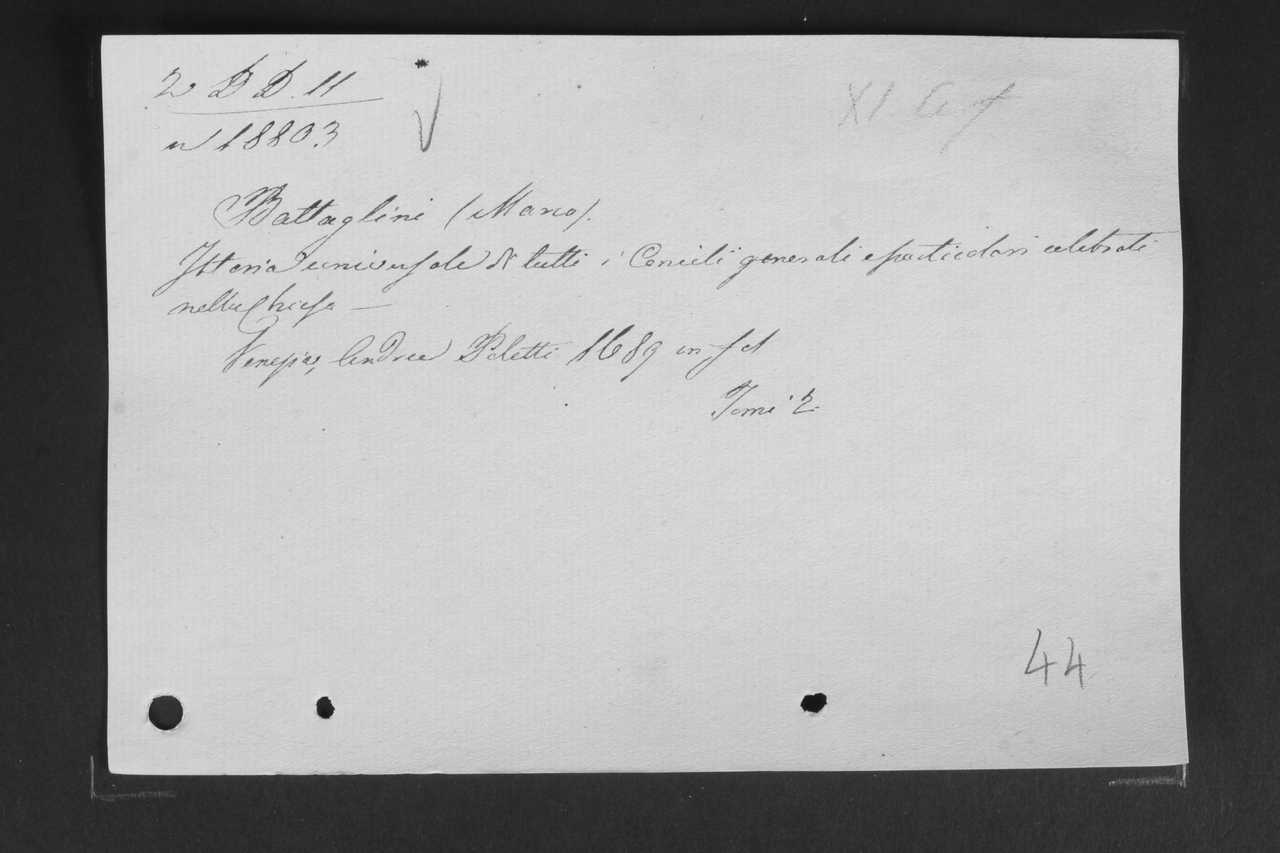 2 DD. 11
n 18803
Battaglini (Marco).
Istoria universale di tutti i Concilii generali e particolari celebrati
nella Chiesa —
Venezia, Andrea Poletti 1689 in fol
Tomi 2
44